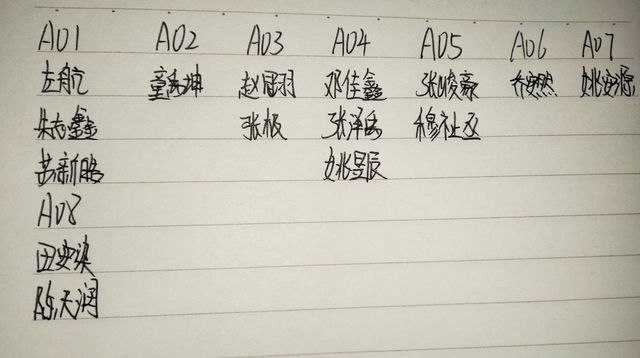 A01 A02 A03 A04 A05 A06 A07
左航 童禹坤 赵冠羽 邓佳鑫 张峻豪 乔安然 姚安源
朱志鑫 张极 张泽禹 穆祉丞
苏新皓 姚昱辰
A08
田安染
陈天润